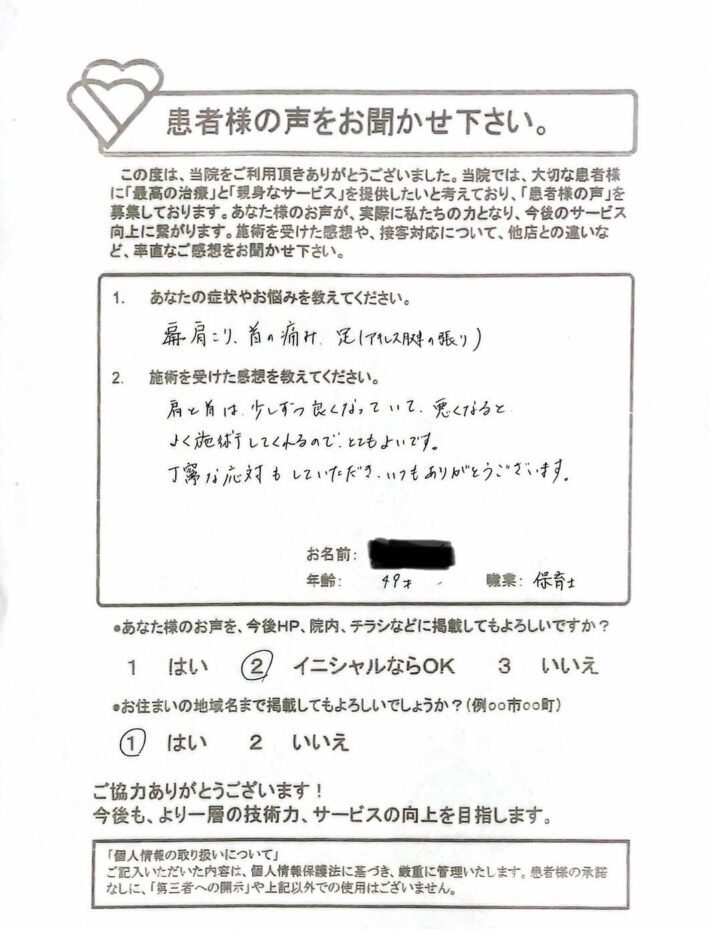 患者様の声をお聞かせ下さい。
この度は、当院をご利用頂きありがとうございました。当院では、大切な患者様
に「最高の治療」と「親身なサービス」を提供したいと考えており、「患者様の声」を
募集しております。あなた様のお声が、実際に私たちの力となり、今後のサービス
向上に繋がります。施術を受けた感想や、接客対応について、他店との違いな
ど、率直なご感想をお聞かせ下さい。
1. あなたの症状やお悩みを教えてください。
肩こり、首の痛み、足(アキレス腱の張り)
2. 施術を受けた感想を教えてください。
肩と首は、少しずつ良くなっていて、悪くなると
よく施術してくれるので、とてもよいです。
丁寧な応対もしていただき、いつもありがとうございます。
お名前:
年齢: 49才 職業: 保育士
●あなた様のお声を、今後HP、院内、チラシなどに掲載してもよろしいですか?
1 はい 2 イニシャルならOK 3 いいえ
●お住まいの地域名まで掲載してもよろしいでしょうか?(例○○市○○町)
1 はい 2 いいえ
ご協力ありがとうございます!
今後も、より一層の技術力、サービスの向上を目指します。
「個人情報の取り扱いについて」
ご記入いただいた内容は、個人情報保護法に基づき、厳重に管理いたします。患者様の承諾
なしに、「第三者への開示」や上記以外での使用はございません。